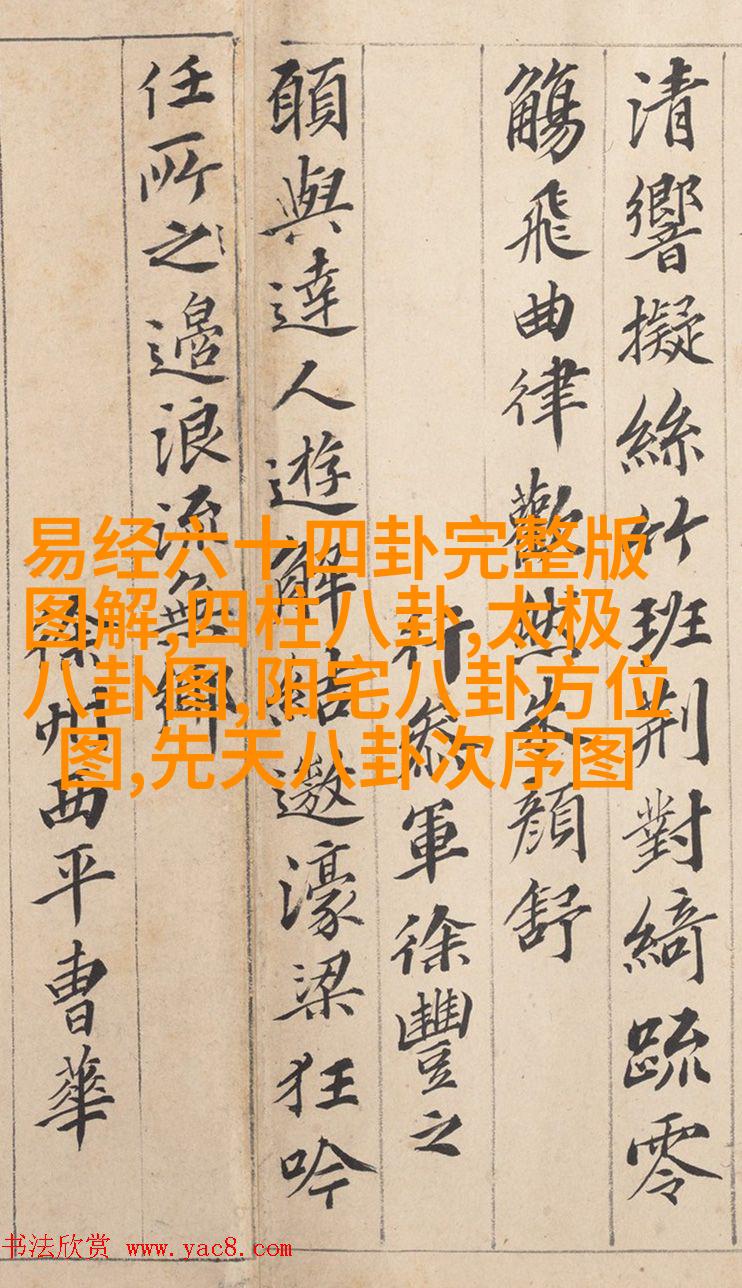 清響擬絲竹班荆對綺疏零
觴飛曲律歡然朱顔舒
行叅軍徐豐之
願與達人遊解結遨濠梁狂吟
任所之邉浪流無鄉
徐州西平曹華
易经六十四卦完整版
图解,四柱八卦,太极
八卦图,阳宅八卦方位
图,先天八卦次序图
书法欣赏 www.yac8.com